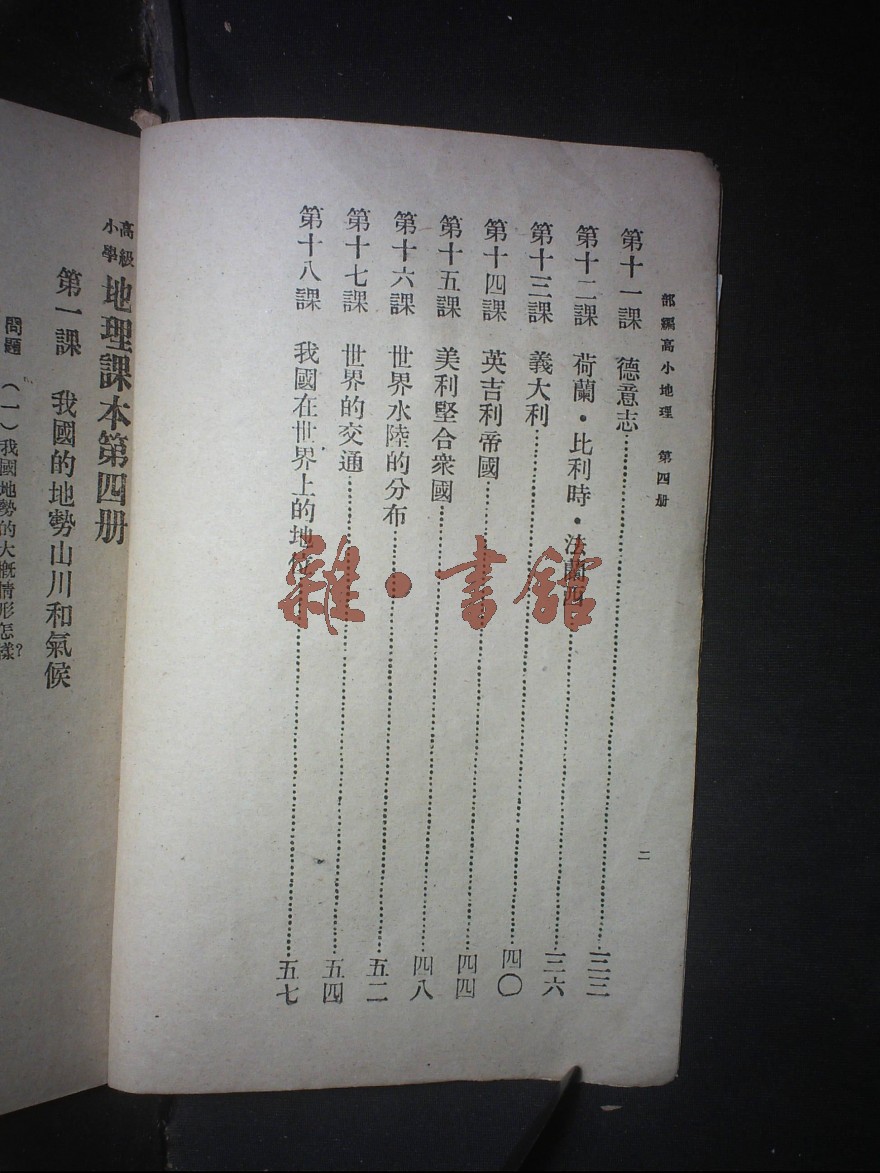 部編高小地理　第四册
二
第十一課　德意志……三三
第十二課　荷蘭・比利時・法蘭西……三六
第十三課　義大利……四〇
第十四課　英吉利帝國……四四
第十五課　美利堅合衆國……四八
第十六課　世界水陸的分布……五二
第十七課　世界的交通……五四
第十八課　我國在世界上的地位……五七
雜・書館
高級小學地理課本第四册
第一課　我國的地勢山川和氣候
問題　（一）我國地勢的大概情形怎樣？